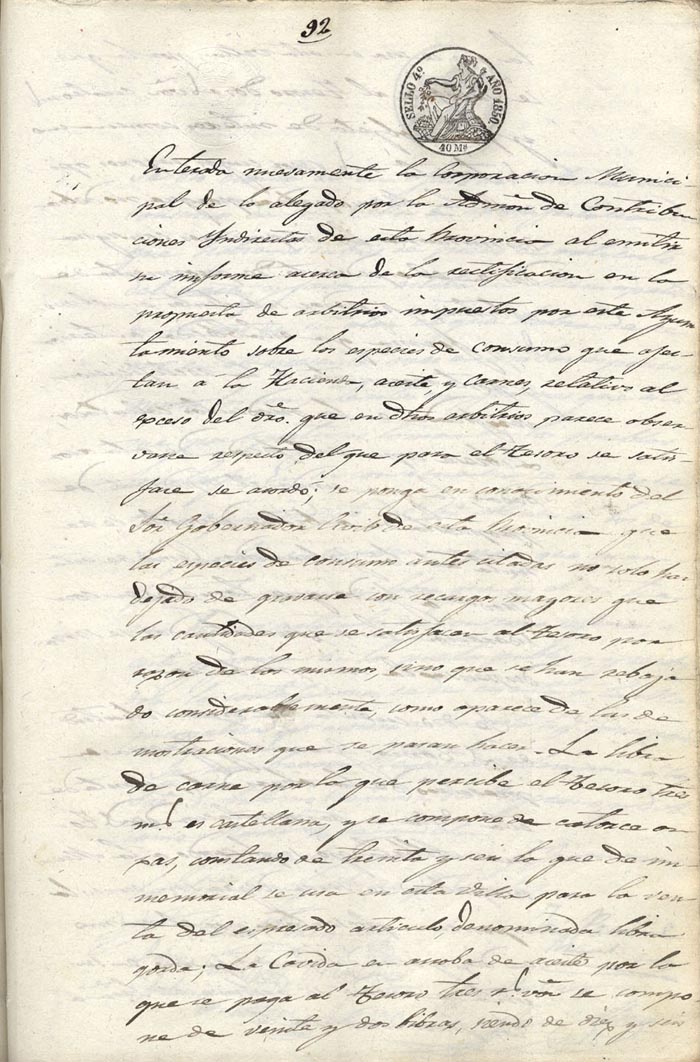 92
SELLO 4º AÑO 1850.
40 Ms
Enterada nuevamente la Corporacion Munici
pal de lo alegado por la Admon de Contribu
ciones Yndirectas de esta Provincia al emitir
su informe acerca de la rectificacion en la
propuesta de arbitrios impuestos por este Ayun
tamiento sobre las especies de consumo que afec
tan a la Hacienda, aceite, y carnes, relativo al
exceso del dro. que en dhos arbitrios parece obser
varse respecto del que para el Tesoro se satis
face se acordó; se ponga en conocimiento del
Sor Gobernador Civil de esta Provincia que
las especies de consumo antes citadas no solo han
dejado de gravarse con recargos mayores que
las cantidades que se satisfacen al Tesoro por
razon de los mismos, sino que se han rebaja
do considerablemente, como aparece de las de
mostraciones que se pasan hacer. La libra
de carne por la que percibe el Tesoro tres
ms es castellana, y se compone de catorce on
zas, constando de treinta y seis la que de in
memorial se usa en esta Villa para la ven
ta del espresado articulo, denominada libra
gorda; La Cavida en arroba de aceite por la
que se paga al Tesoro tres rs von se compo
ne de veinte y dos libras, siendo de diez y seis